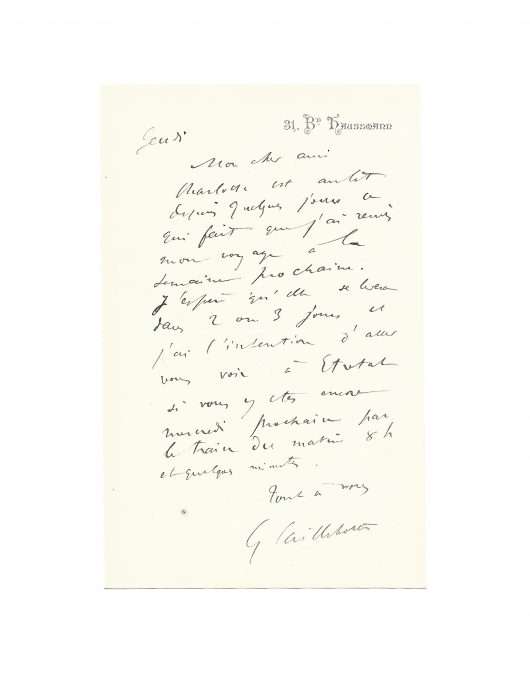 31, Bd Haussmann
Jeudi
Mon cher ami
Charlotte est au lit
depuis quelques jours ce
qui fait que j'ai remis
mon voyage à la
semaine prochaine.
J'espère qu'elle se lèvera
dans 2 ou 3 jours et
j'ai l'intention d'aller
vous voir à Etretat
si vous y êtes encore
mercredi prochain par
le train du matin 8 h
et quelques minutes.
Tout à vous
G Caillebotte